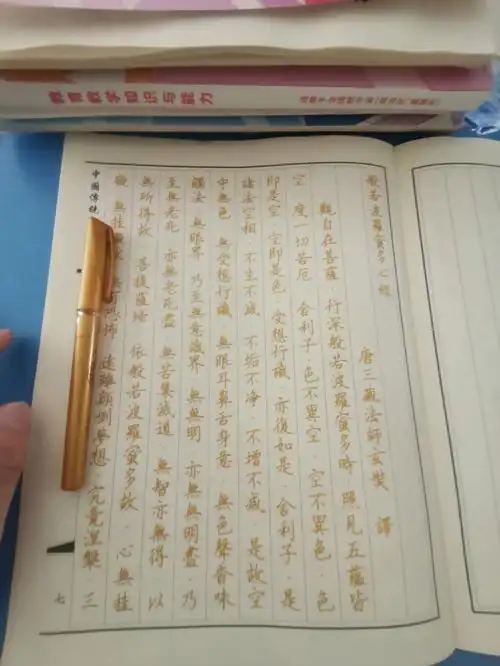 教育教学知识与能力
般若波羅蜜多心經
唐三藏法師玄奘 譯
觀自在菩薩 行深般若波羅蜜多時 照見五蘊皆
空 度一切苦厄 舍利子·色不異空·空不異色·色
即是空·空即是色·受想行識 亦復如是 舍利子·是
諸法空相·不生不滅·不垢不淨·不增不減·是故空
中無色·無受想行識·無眼耳鼻舌身意·無色聲香味
觸法 無眼界 乃至無意識界 無無明 亦無無明盡·乃
至無老死 亦無老死盡 無苦集滅道 無智亦無得·以
無所得故 菩提薩埵 依般若波羅蜜多故·心無挂
礙 無挂 恐怖 遠離顛倒夢想·究竟涅槃·三
中國傳統
七